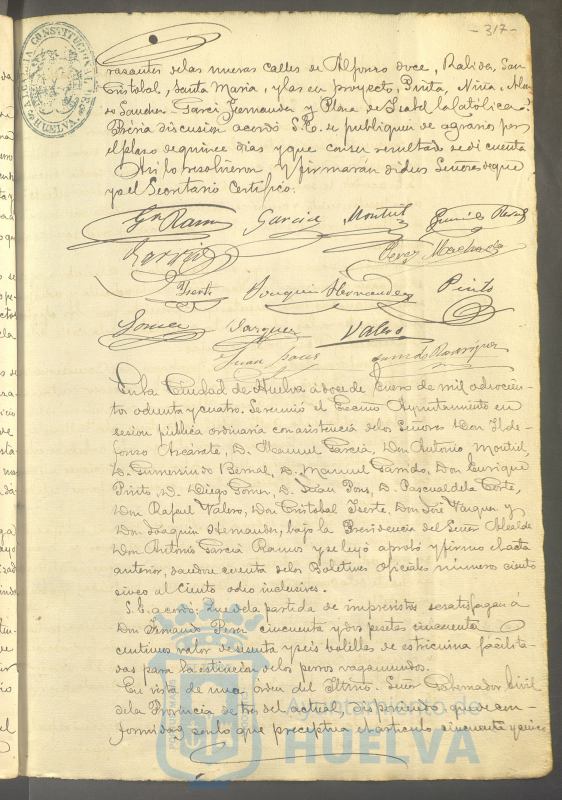 -317-
ALCALDIA CONSTITUCIONAL HUELVA
rasantes delas nuevas calles de Alfonso doce, Rabida, San
Cristobal, Santa Maria, y las en proyecto, Pinta, Niña, Alon-
so Sanchez, Garci Fernandez y Plaza de Isabel la Católica.
Prévia discusion acordó S.E. se publiquen de agravio por
el plazo de quince dias y que con su resultado se dé cuenta
Asi lo resolvieron y firmarán dichos Señores de que
yo el Secretario Certifico.
Gª Ramos Garcia Montiel
Garrido Perez Machado
Iserte Joaquin Hernandez Pinto
Gomez Vazquez Valero
Juan Pous
En la Ciudad de Huelva á doce de Enero de mil ochocien-
tos ochenta y cuatro. Se reunió el Excmo Ayuntamiento en
sesion pública ordinaria con asistencia de los Señores Don Ilde-
fonso Azcárate, D. Manuel Garcia, Don Antonio Montiel,
D. Gumersindo Bernal, D. Manuel Garrido, Don Enrique
Pinto, D. Diego Gomez, D. Juan Pous, D. Pascual dela Corte,
Don Rafael Valero, Don Cristobal Iserte, Don José Vazquez y
Don Joaquin Hernandez, bajo la Presidencia del Señor Alcalde
Don Antonio Garcia Ramos y se leyó aprobó y firmó el acta
anterior, dandose cuenta delos Boletines Oficiales número ciento
cinco al Ciento ocho inclusives.
S.E. acordó: Que dela partida de imprevistos se satisfagan á
Don Fernando Perez cincuenta y dos pesetas cincuenta
centimos valor de sesenta y seis bolillas de estricnina facilita-
das para la estincion delos perros vagamundos.
En vista de una orden del Iltmo. Señor Gobernador Civil
dela Provincia de tres del actual, disponiendo que de con-
formidad con lo que preceptua el artículo cincuenta y cinco
Ayuntamiento de
HUELVA